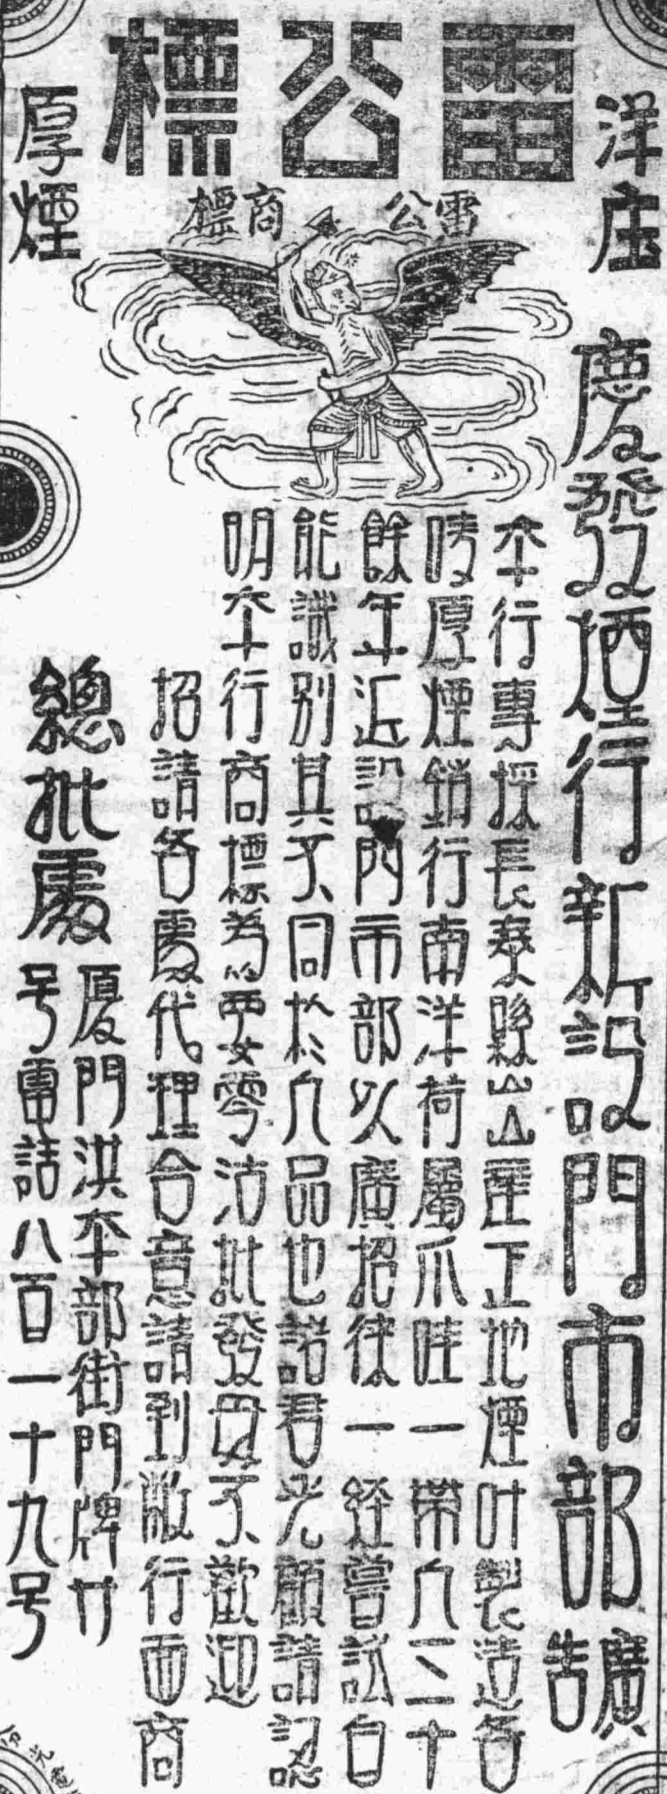 雷公標
洋庄
厚煙
雷公
商標
慶發煙行新設門市部廣告
本行專採長泰縣出產正地煙叶製造各
時厚煙銷行南洋荷屬爪哇一帶凡三十
餘年近設門市部以廣招徠一經嘗試自
能識別其不同於凡品也諸君光顧請認
明本行商標為要零沽批發毋不歡迎
招請各處代理合意請到敝行面商
總批處
厦門洪本部街門牌廿
号電話八百一十九号